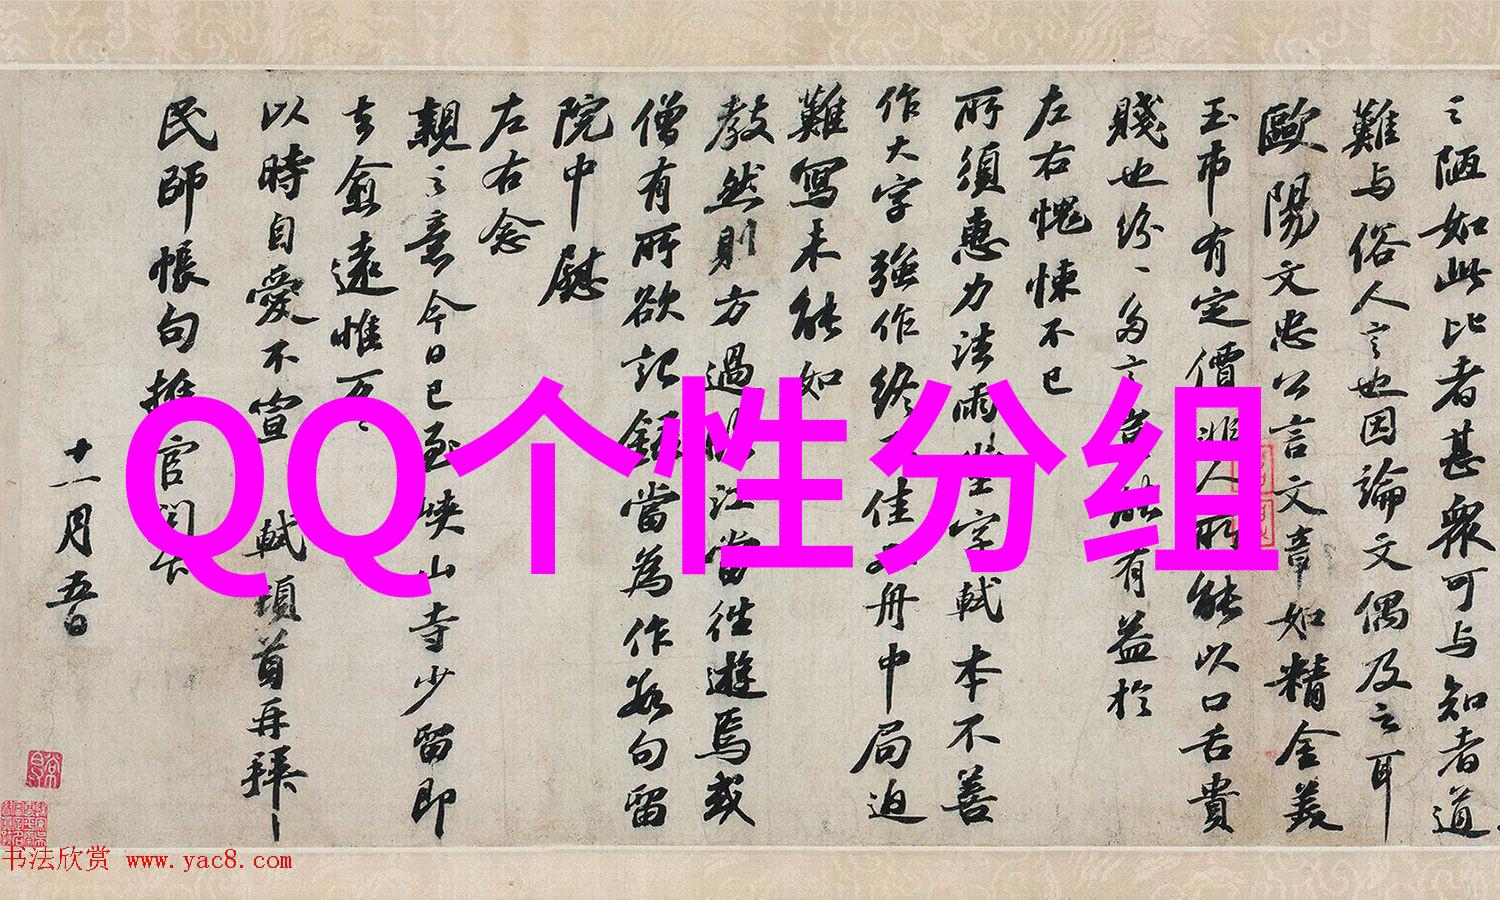 之陋如此比者甚衆可与知者道
難与俗人言也因論文偶及之耳
歐陽文忠公言文章如精金美
玉市有定價非人所能以口舌貴
賤也紛〻多言豈能有益於
左右愧悚不已
所須惠力法雨堂字軾本不善
作大字強作終不佳又舟中局迫
難寫未能如
教然則方過臨江當往遊焉或
僧有所欲記録當為作數句留
院中慰
左右念
親之意今日已至峽山寺少留即
去愈遠惟万〻
以時自愛不宣 軾頓首再拜
民師帳句推官閣下
十一月五日
QQ个性分组
书法欣赏 www.yac8.com